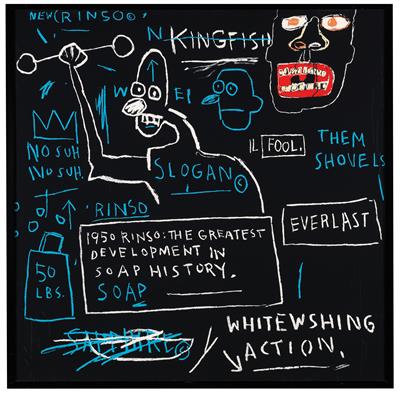 NEW(RINSO©'
N KINGFISH
W EI
NO SUH
NO SUH
SLOGAN©
IL FOOL.
THEM
SHOVELS
RINSO
1950 RINSO: THE GREATEST
DEVELOPMENT IN
SOAP HISTORY.
SOAP
EVERLAST
50
LBS.
SAPPHIRE©
WHITEWSHING
ACTION.